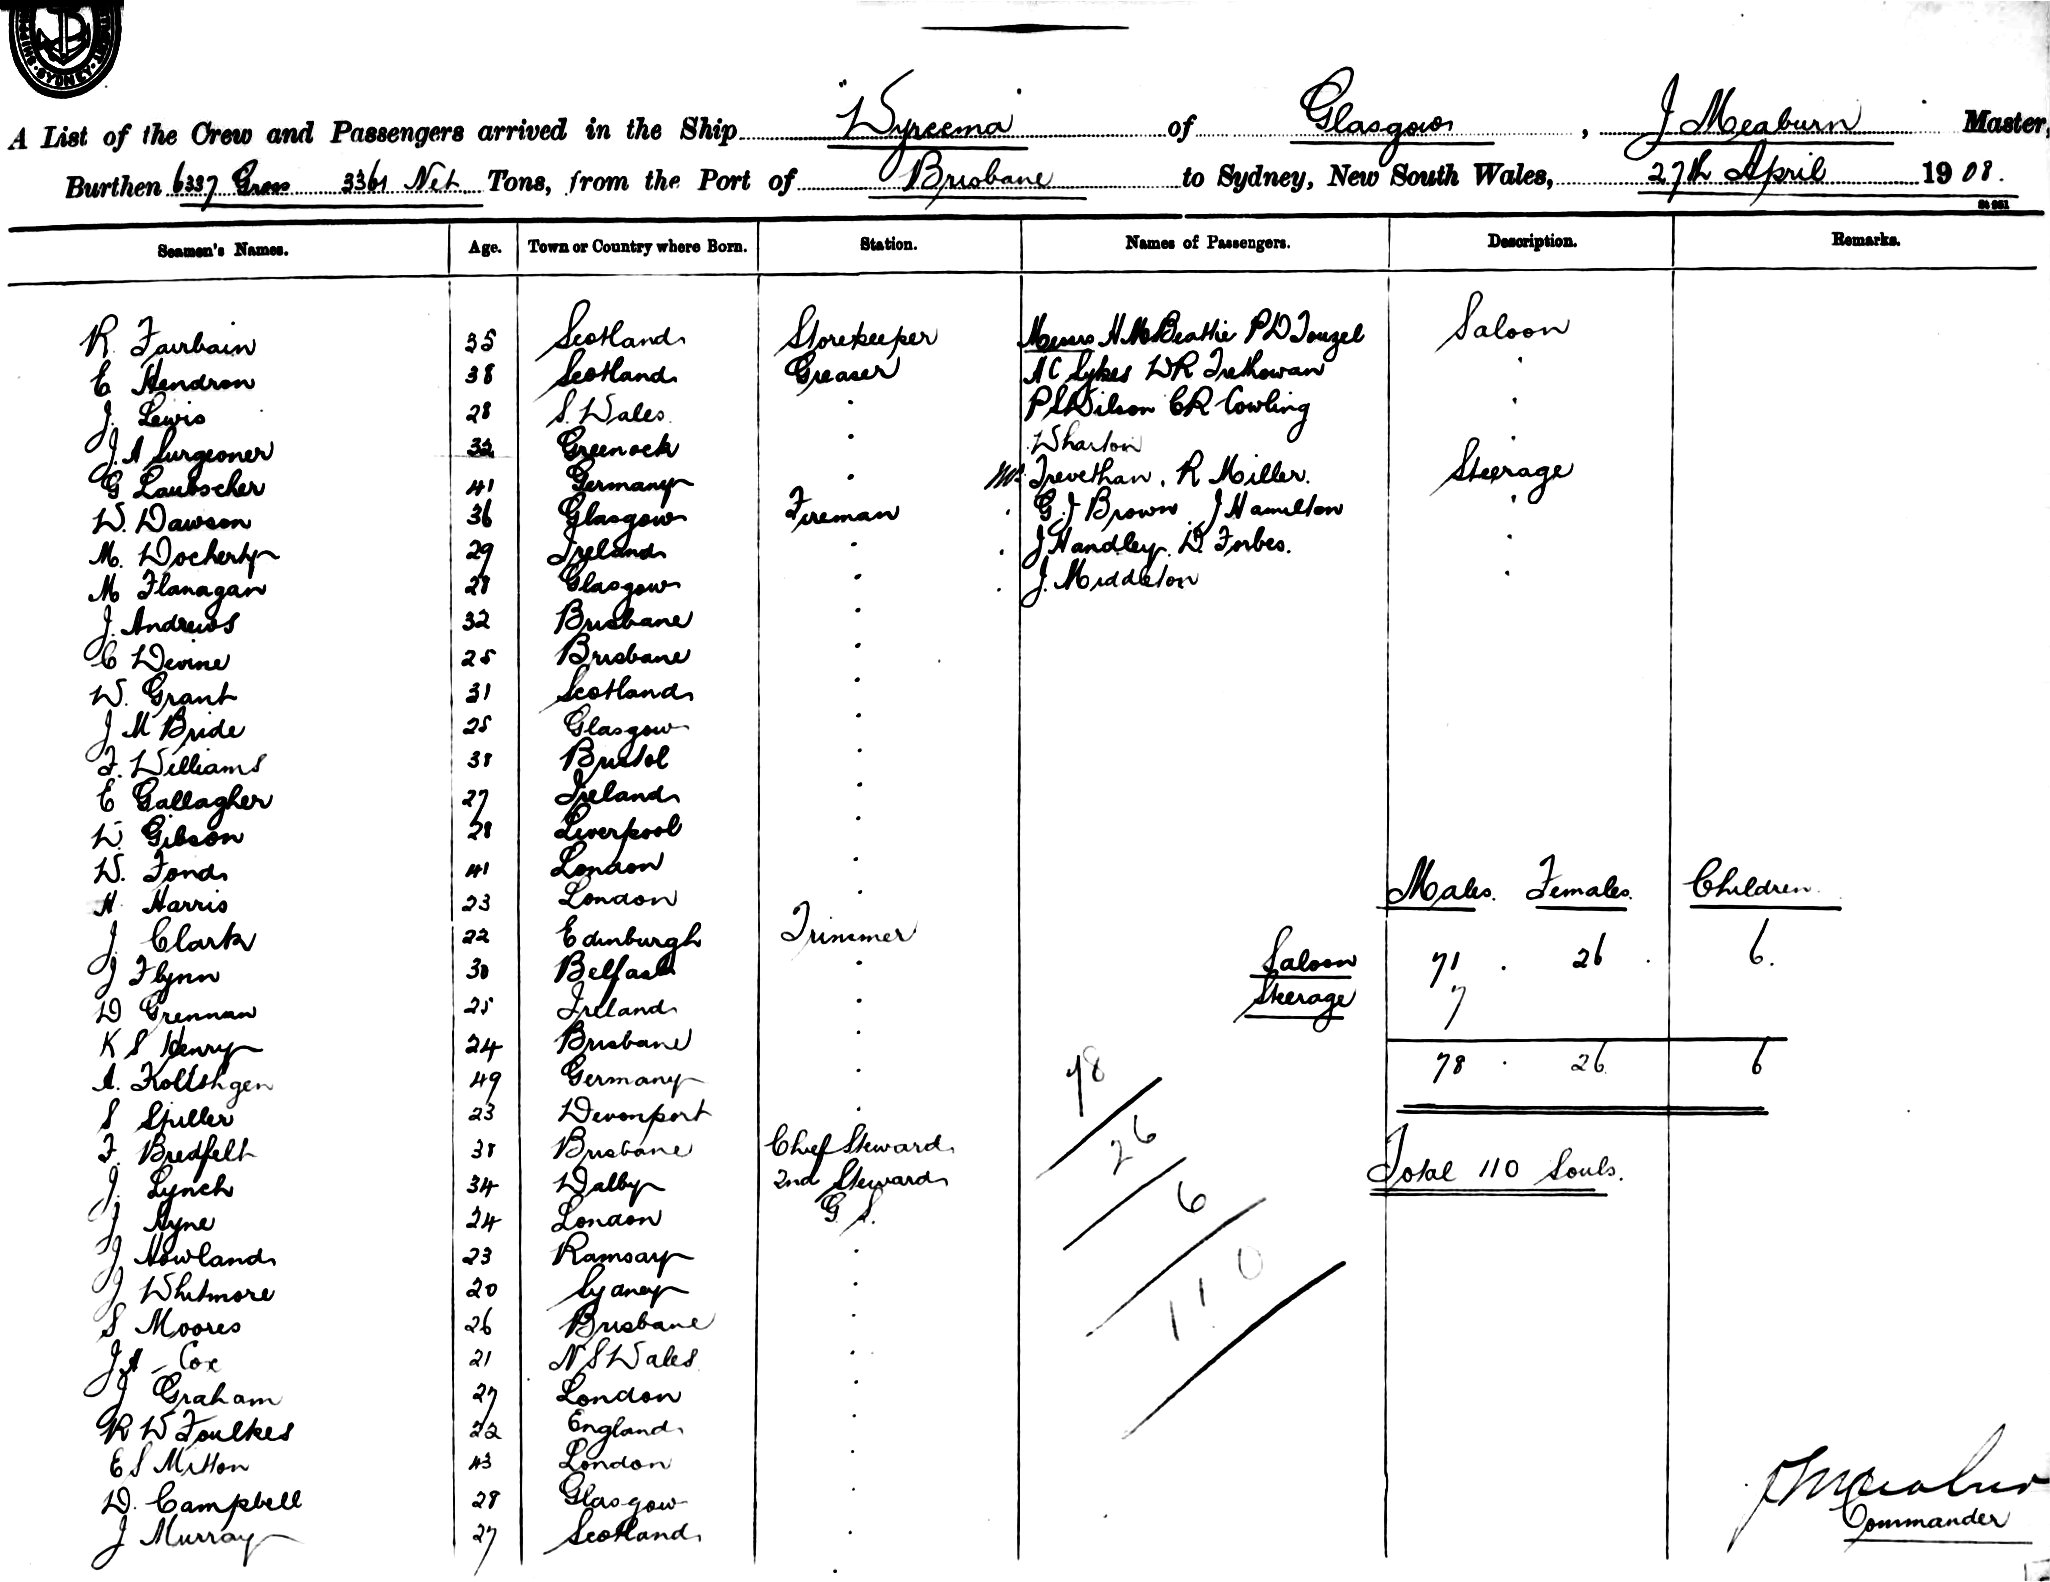 SYDNEY
A List of the Crew and Passengers arrived in the Ship "Wyreema" of Glasgow, J Meaburn Master,
Burthen 6337 Gross 3361 Net Tons, from the Port of Brisbane to Sydney, New South Wales, 27th April 1908.
Seamen's Names. Age. Town or Country where Born. Station. Names of Passengers. Description. Remarks.
R. Fairbain 35 Scotland Storekeeper Messrs H McBeathie P D Touzel Saloon
E Hendron 38 Scotland Greaser A C Sykes W R Trethowan "
J. Lewis 28 S. Wales " P S Wilson C R Cowling "
J. A Surgeoner 32 Greenock " Wharton "
G Laubscher 41 Germany " Trevethan, R Miller. Steerage
W. Dawson 36 Glasgow Fireman G. J Brown J Hamilton "
M. Docherty 29 Ireland " J Handley. D. Forbes. "
M Flanagan 28 Glasgow " J. Middleton "
J. Andrews 32 Brisbane "
C Devine 25 Brisbane "
W. Grant 31 Scotland "
J McBride 25 Glasgow "
F. Williams 38 Bristol "
E Gallagher 27 Ireland "
W. Gibson 28 Liverpool "
W. Fond 41 London "
H Harris 23 London " Males. Females. Children.
J. Clark 22 Edinburgh Trimmer
J Flynn 30 Belfast " Saloon 71 . 26 . 6.
D Grennan 25 Ireland " Steerage 7
K S Henry 24 Brisbane "
A. Kolthgen 49 Germany " 78 . 26 6
S Spiller 23 Devonport " 78
F. Bredfelt 38 Brisbane Chief Steward 26
J. Lynch 34 Dalby 2nd Steward Total 110 Souls.
J Hyne 24 London G. S. 6
J Howland 23 Ramsay " 110
J Whitmore 20 Sydney "
S Moores 26 Brisbane "
J A Cox 21 N S Wales "
J Graham 27 London "
R W Foulkes 22 England "
E S Mitton 43 London "
D. Campbell 28 Glasgow " J Meaburn
J Murray 27 Scotland " Commander